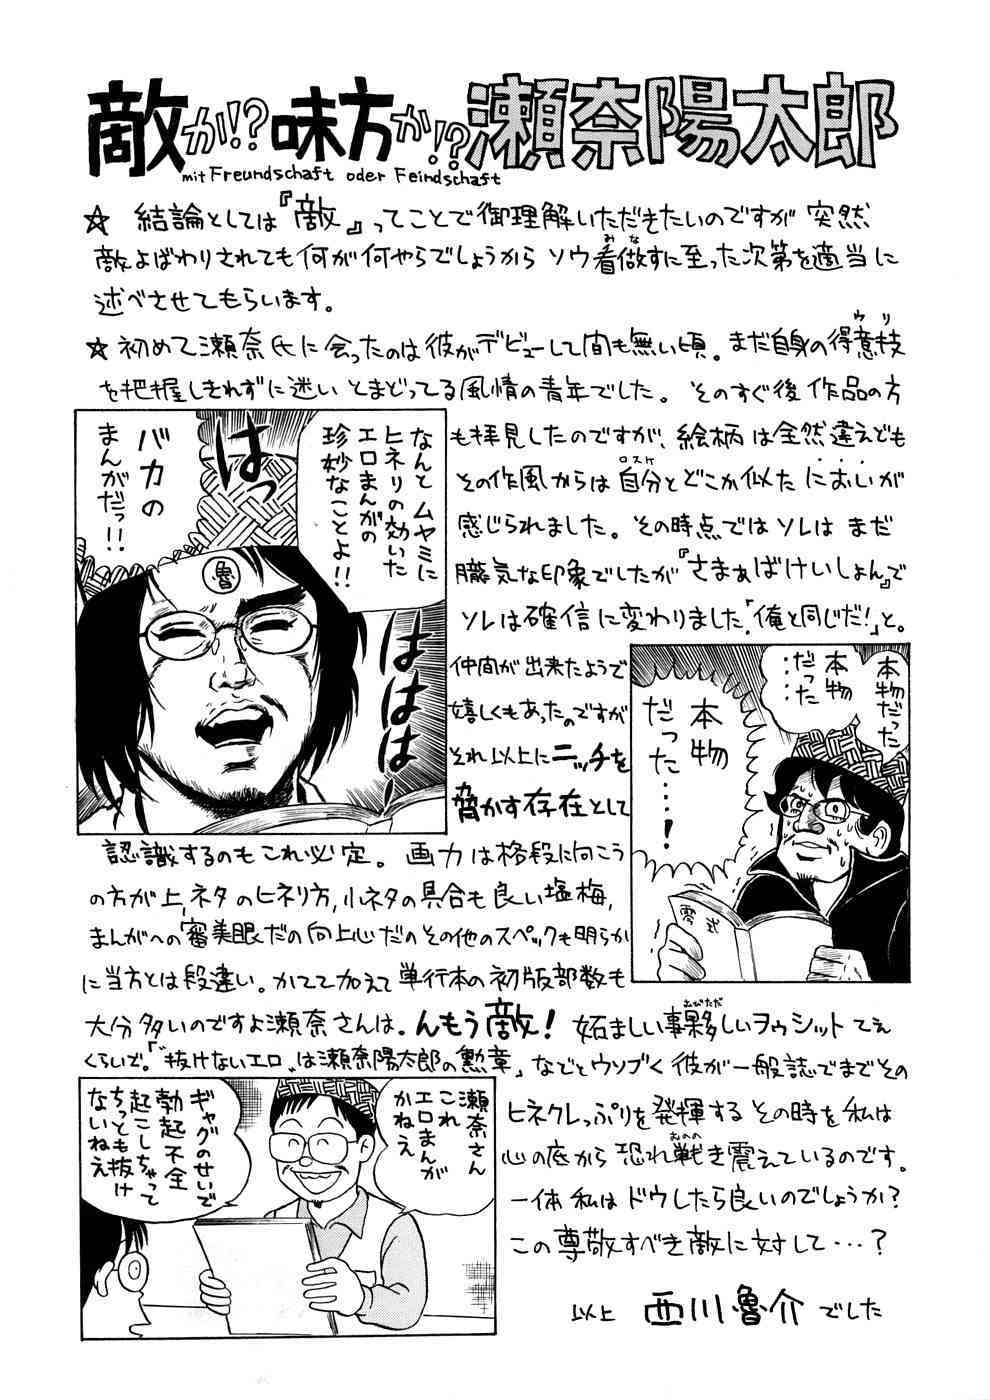 敵か!?味方か!?瀬奈陽太郎
mit Freundschaft oder Feindschaft
☆ 結論としては『敵』ってことで御理解いただきたいのですが 突然
敵よばわりされても何が何やらでしょうから ソウ看做すに至った次第を適当に
みな
述べさせてもらいます。
☆初めて瀬奈氏に会ったのは彼がデビューして間も無い頃。まだ自身の得意技
ウリ
を把握しきれずに迷い とまどってる風情の青年でした。 そのすぐ後 作品の方
も拝見したのですが、絵柄は全然違えども
その作風からは自分とどこか似た においが
ロスケ
感じられました。その時点ではソレは まだ
朧気な印象でしたが『さまぁばけいしょん』で
ソレは確信に変わりました「俺と同じだ!」と。
なんと ムヤミに
ヒネリの効いた
エロまんがの
珍妙なことよ!!
はっ
バカの
まんがだっ!!
魯
ははは
仲間が出来たようで
嬉しくもあったのですが
それ以上にニッチを
脅かす存在として
本物だった
本物
だった
……
本物
だった……!
零式
認識するのもこれ必定。 画力は格段に向こう
の方が上,ネタのヒネリ方,小ネタの具合も良い塩梅,
まんがへの審美眼だの向上心だのその他のスペックも明らか
に当方とは段違い。かてて加えて単行本の初版部数も
大分多いのですよ瀬奈さんは。んもう敵! 妬ましい事夥しいヲゥシットてぇ
おびただ
くらいで。「〝抜けないエロ〟は瀬奈陽太郎の勲章」などとウソブく彼が一般誌でまでその
ヒネクレっぷりを発揮するその時を私は
心の底から恐れ戦き震えているのです。
おのの
一体 私は ドウしたら良いのでしょうか?
この尊敬すべき敵に対して…?
瀬奈さん
これ
エロまんが
かねえ
ギャグのせいで
勃起不全
起こしちゃって
ちっとも抜け
ないねえ
以上 西川魯介 でした